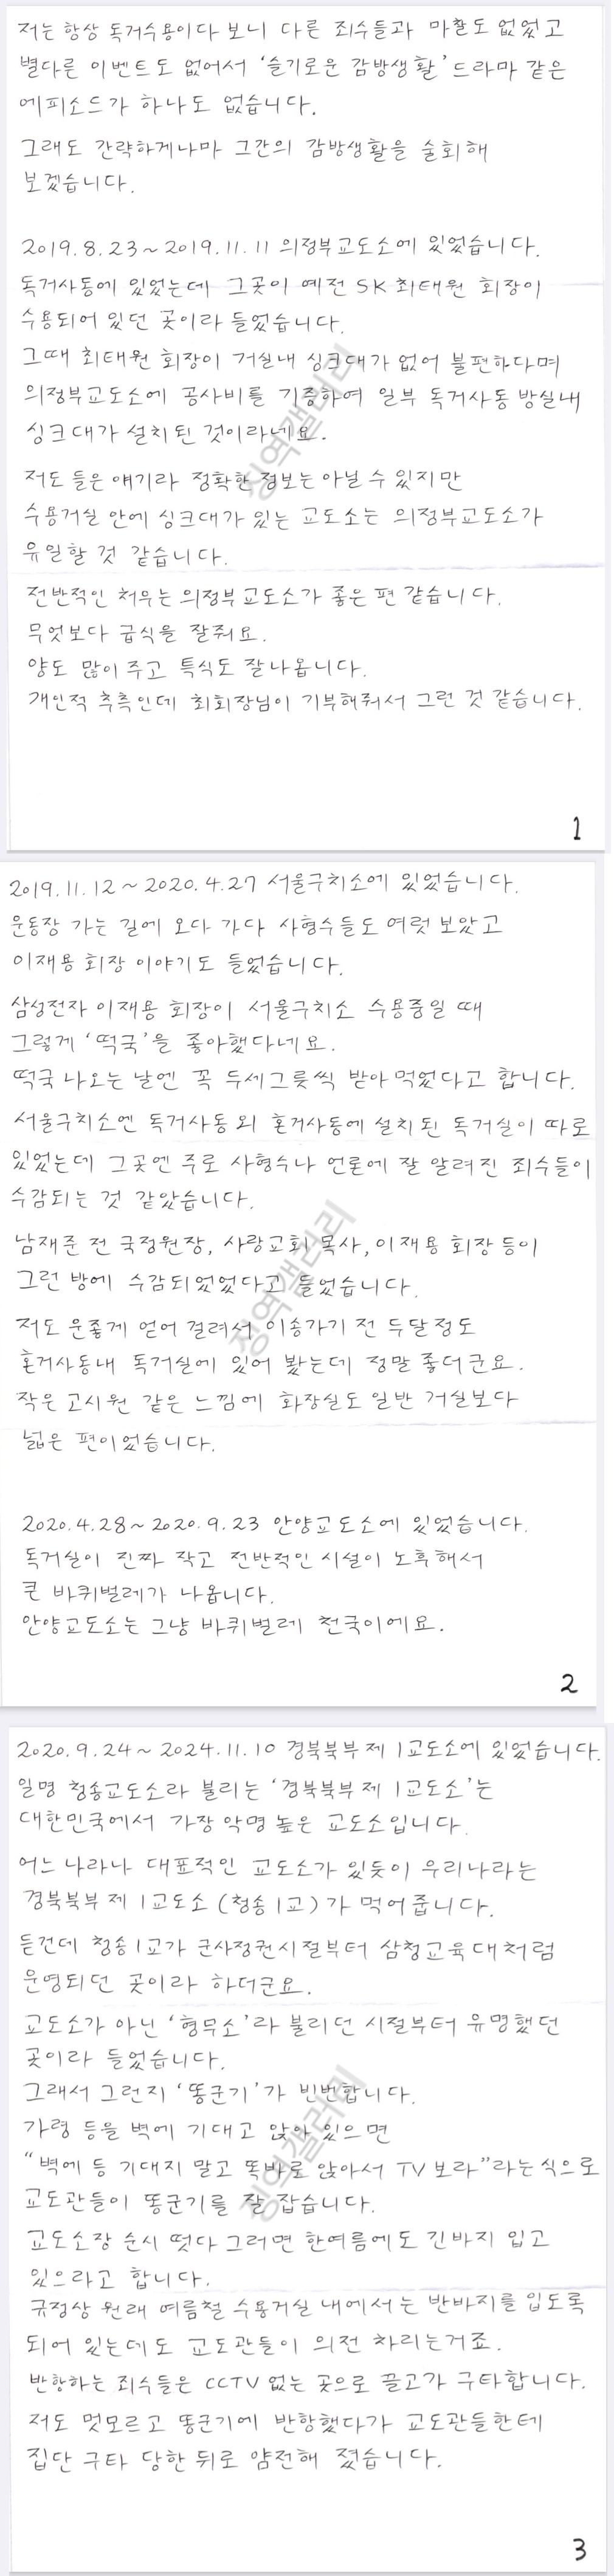 저는 항상 독거수용이다 보니 다른 죄수들과 마찰도 없었고
별다른 이벤트도 없어서 '슬기로운 감방생활' 드라마 같은
에피소드가 하나도 없습니다.
그래도 간략하게나마 그간의 감방생활을 술회해
보겠습니다.
2019.8.23~2019.11.11 의정부교도소에 있었습니다.
독거사동에 있었는데 그곳이 예전 SK 최태원 회장이
수용되어 있던 곳이라 들었습니다.
그때 최태원 회장이 거실내 싱크대가 없어 불편하다며
의정부교도소에 공사비를 기증하여 일부 독거사동 방실내
싱크대가 설치된 것이라네요.
저도 들은 얘기라 정확한 정보는 아닐 수 있지만
수용거실 안에 싱크대가 있는 교도소는 의정부교도소가
유일할 것 같습니다.
전반적인 처우는 의정부교도소가 좋은 편 같습니다.
무엇보다 급식을 잘줘요.
양도 많이 주고 특식도 잘나옵니다.
개인적 추측인데 최회장님이 기부해줘서 그런 것 같습니다.
1
2019.11.12~2020.4.27 서울구치소에 있었습니다.
운동장 가는 길에 오다 가다 사형수들도 여럿 보았고
이재용 회장 이야기도 들었습니다.
삼성전자 이재용 회장이 서울구치소 수용중일 때
그렇게 '떡국'을 좋아했다네요.
떡국 나오는 날엔 꼭 두세그릇씩 받아 먹었다고 합니다.
서울구치소엔 독거사동 외 혼거사동에 설치된 독거실이 따로
있었는데 그곳엔 주로 사형수나 언론에 잘 알려진 죄수들이
수감되는 것 같았습니다.
남재준 전 국정원장, 사랑교회 목사, 이재용 회장 등이
그런 방에 수감되었었다고 들었습니다.
저도 운좋게 얻어 걸려서 이송가기 전 두달정도
혼거사동내 독거실에 있어 봤는데 정말 좋더군요.
작은 고시원 같은 느낌에 화장실도 일반 거실보다
넓은 편이었습니다.
2020.4.28~2020.9.23 안양교도소에 있었습니다.
독거실이 진짜 작고 전반적인 시설이 노후해서
큰 바퀴벌레가 나옵니다.
안양교도소는 그냥 바퀴벌레 천국이에요.
2
2020.9.24~2024.11.10 경북북부 제1교도소에 있었습니다.
일명 청송교도소라 불리는 '경북북부 제1교도소'는
대한민국에서 가장 악명 높은 교도소입니다.
어느 나라나 대표적인 교도소가 있듯이 우리나라는
경북북부 제1교도소 (청송1교)가 먹어줍니다.
듣건데 청송1교가 군사정권시절부터 삼청교육대처럼
운영되던 곳이라 하더군요.
교도소가 아닌 '형무소'라 불리던 시절부터 유명했던
곳이라 들었습니다.
그래서 그런지 '똥군기'가 빈번합니다.
가령 등을 벽에 기대고 앉아 있으면
"벽에 등 기대지 말고 똑바로 앉아서 TV 보라"라는 식으로
교도관들이 똥군기를 잘 잡습니다.
교도소장 순시 떳다 그러면 한여름에도 긴바지 입고
있으라고 합니다.
규정상 원래 여름철 수용거실 내에서는 반바지를 입도록
되어 있는데도 교도관들이 의전 차리는거죠.
반항하는 죄수들은 CCTV 없는 곳으로 끌고가 구타합니다.
저도 멋모르고 똥군기에 반항했다가 교도관들한테
집단 구타 당한 뒤로 얌전해 졌습니다.
3
징역갤러리
징역갤러리
징역갤러리